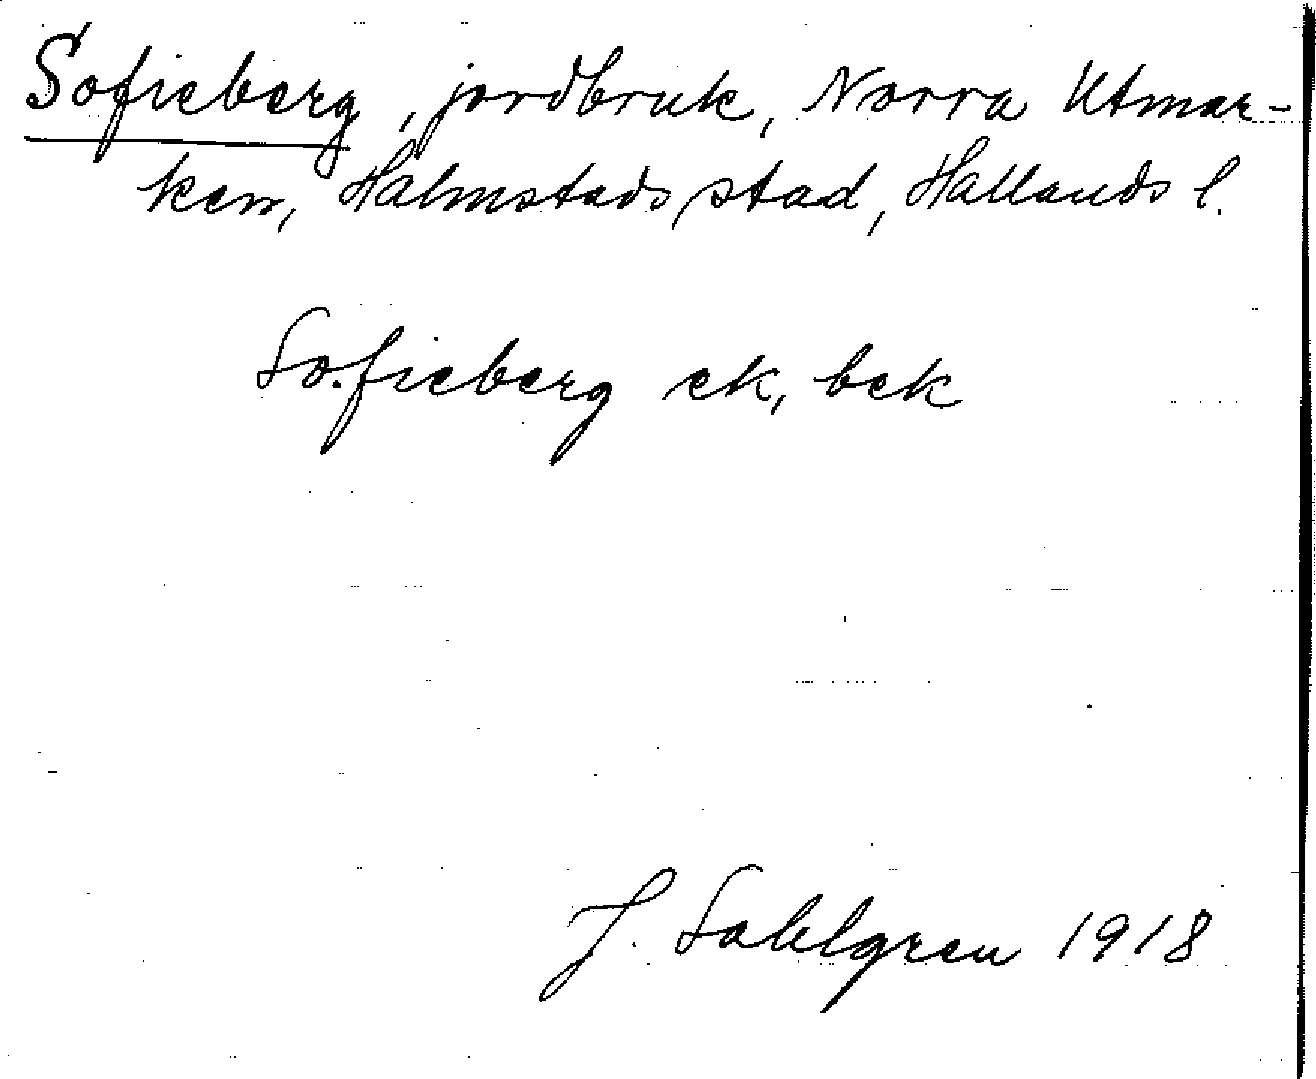 Sofieberg, jordbruk, Norra Utmar-
ken, Halmstads stad, Hallands l.
Sofieberg ek, bek
J. Sahlgren 1918